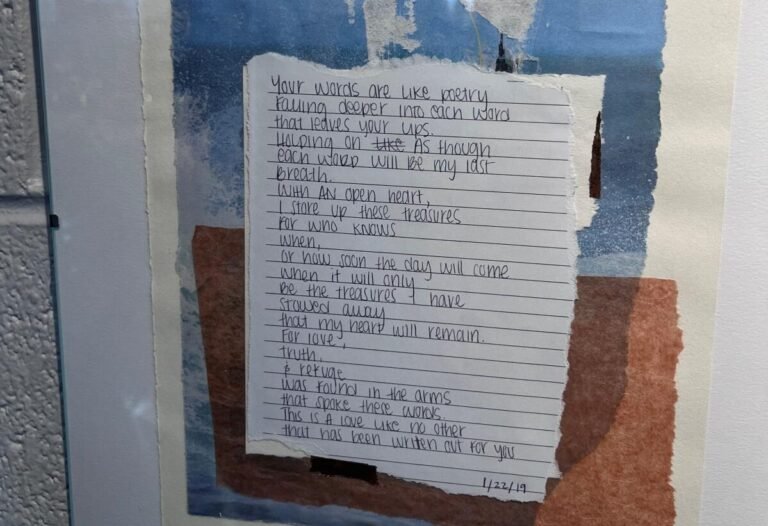 Your words are like poetry
Falling deeper into each word
that leaves your lips.
Holding on like As though
each word will be my last
Breath.
With AN open heart,
I store up these treasures
For who knows
when,
or how soon the day will come
when it will only
Be the treasures I have
stowed away
that my heart will remain.
For love,
truth,
& refuge
was found in the arms
that spoke these words.
This is A love like no other
that has been written out for you
1/22/19